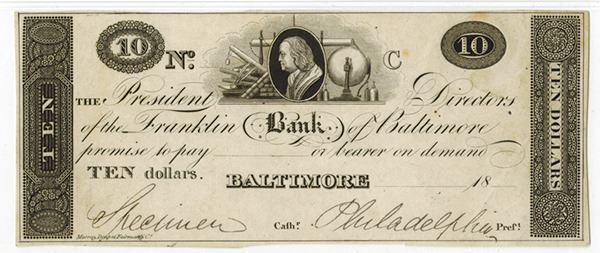 10 No. C 10
THE President Directors
of the Franklin Bank of Baltimore
promise to pay or bearer on demand
TEN dollars. BALTIMORE 18
Specimen Cashr. Philadelphia Prest.
Murray, Draper, Fairman & Co.
TEN
TEN DOLLARS